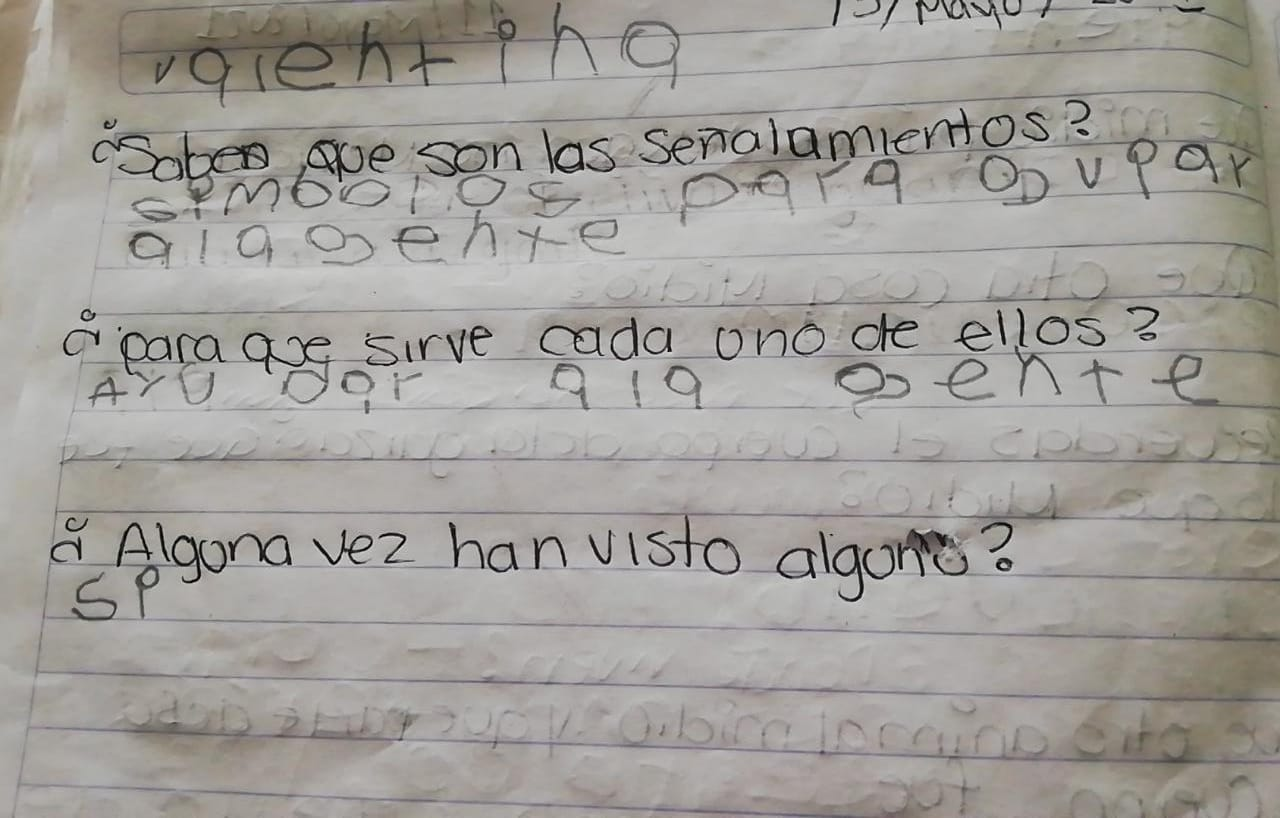 13/Mayo/
valentina
¿Saben que son las señalamientos?
símbolos para gupar
ala gente
¿para que sirve cada uno de ellos?
AYU dar ala gente
¿Alguna vez han visto alguno?
Sí